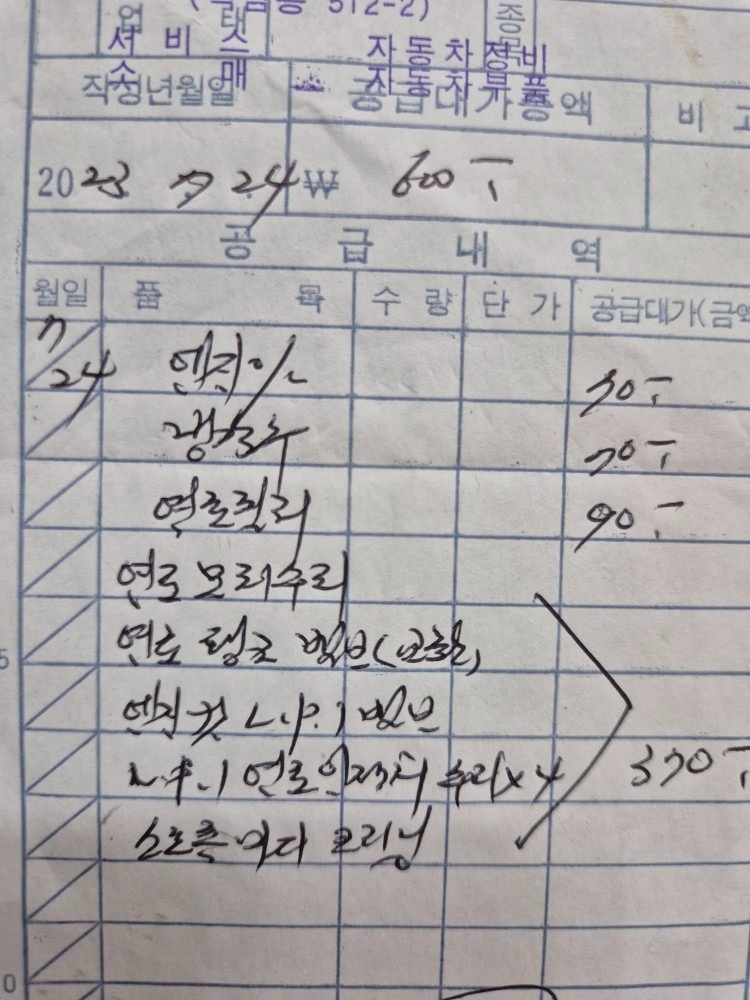 512-2)
업 태 종
서 비 스 자동차정비
소 매 자동차부품
작성년월일 공급대가총액 비 고
2023 7 24 ₩ 600 -
공 급 내 역
월일 품 목 수 량 단 가 공급대가(금액
7
24 엔진오일 70 -
냉각수 70 -
연료필터 90 -
연료모터수리
연료탱크 밸브(교환)
엔진 컷 L.P.I 밸브
5
L.P.I 연료인젝터 수리 x 4 370 -
스로틀바디 크리닝
0